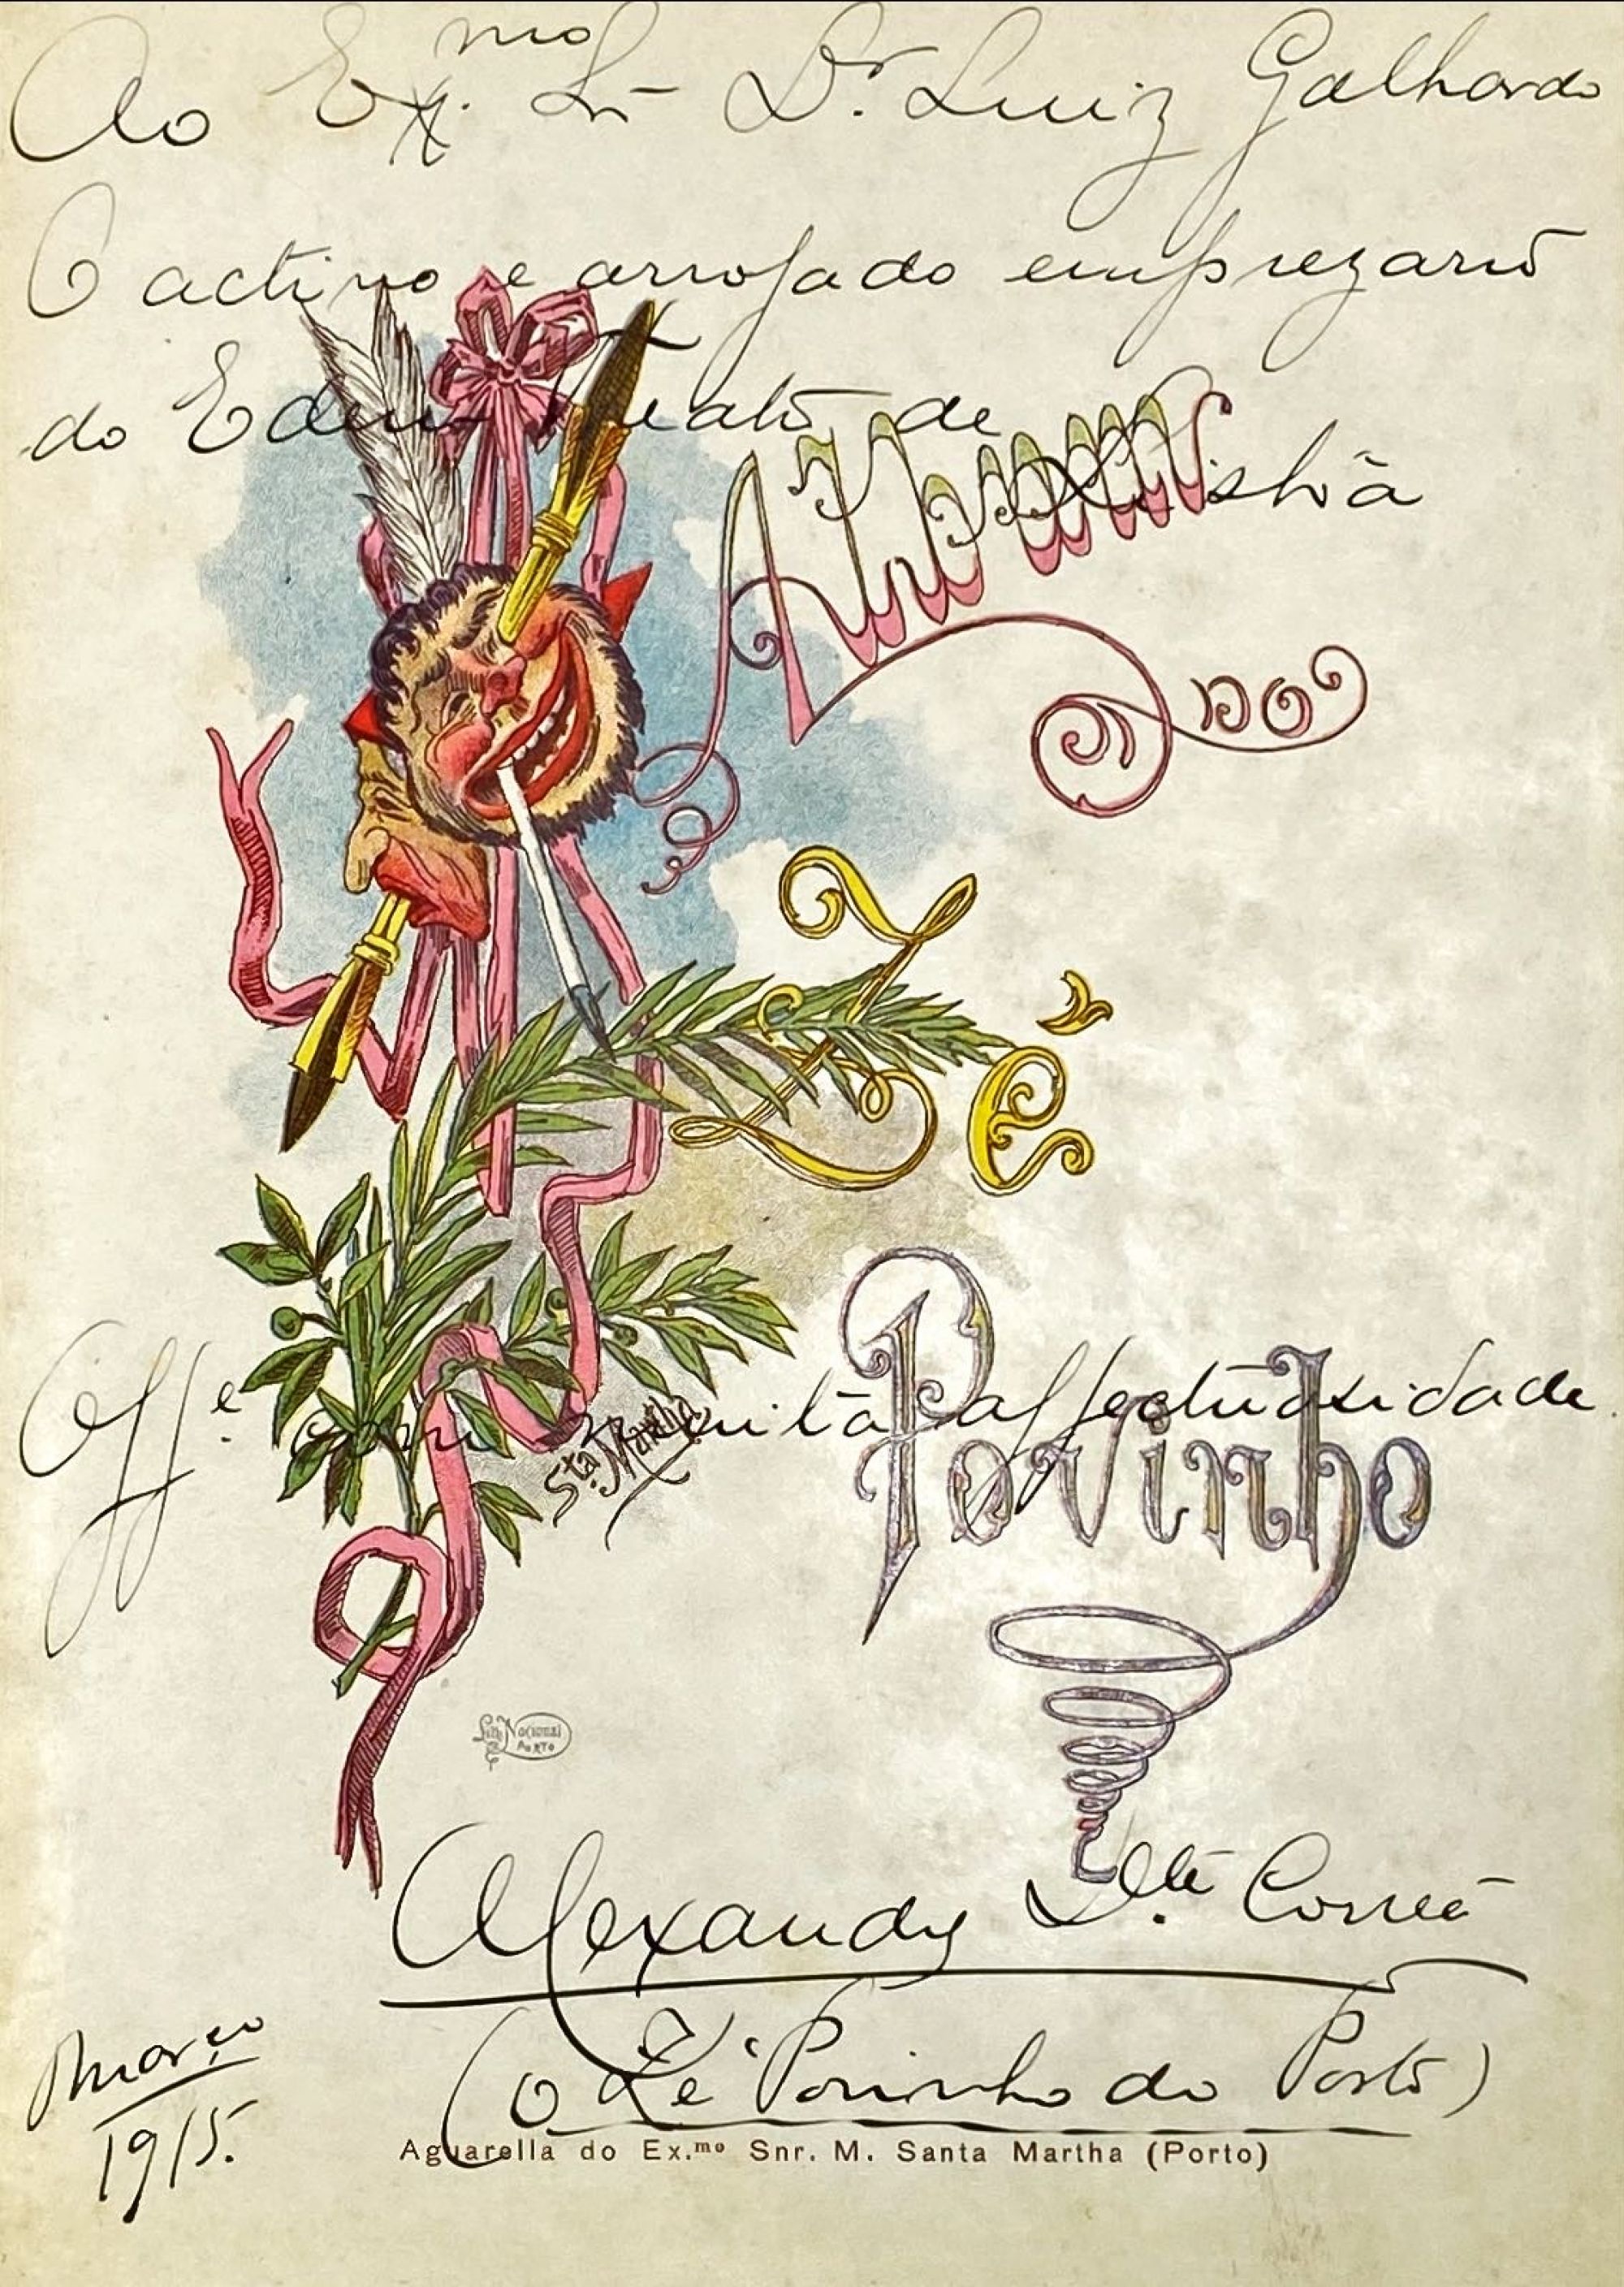 Ao Ex.mo Sr Dr. Luiz Galhardo
O activo e arrojado emprezario
do Eden Theatro de
Lisboa
Album
no
Zé
Povinho
Off.e com muita affectuosidade.
Sta. Martha
Lith. Nacional
PORTO
Alexandre D. Correa
(O Zé Povinho do Porto)
Março
1915.
Aguarella do Ex.mo Snr. M. Santa Martha (Porto)